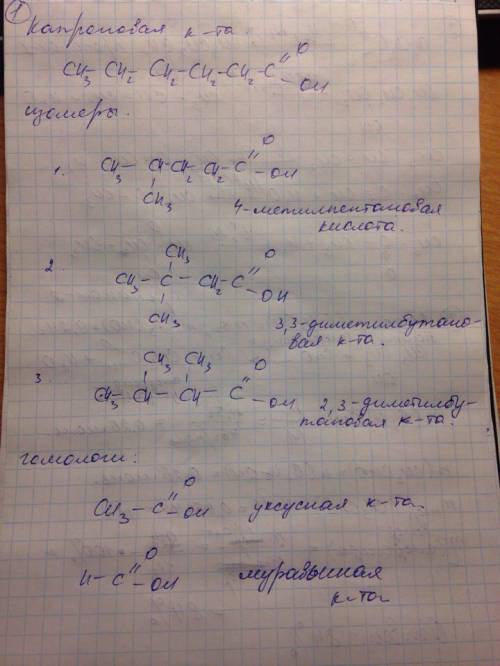 1
Капроновая к-та.
CH3-CH2-CH2-CH2-CH2-C=O-OH
изомеры.
1. CH3-CH-CH2-CH2-C=O-OH
CH3
4-метилпентановая
кислота.
CH3
2. CH3-C-CH2-C=O-OH
CH3
3,3-диметилбутано-
вая к-та.
CH3 CH3
3 CH3-CH-CH-C=O-OH
2,3-диметилбу-
тановая к-та.
гомологи:
CH3-C=O-OH уксусная к-та.
H-C=O-OH муравьиная
к-та